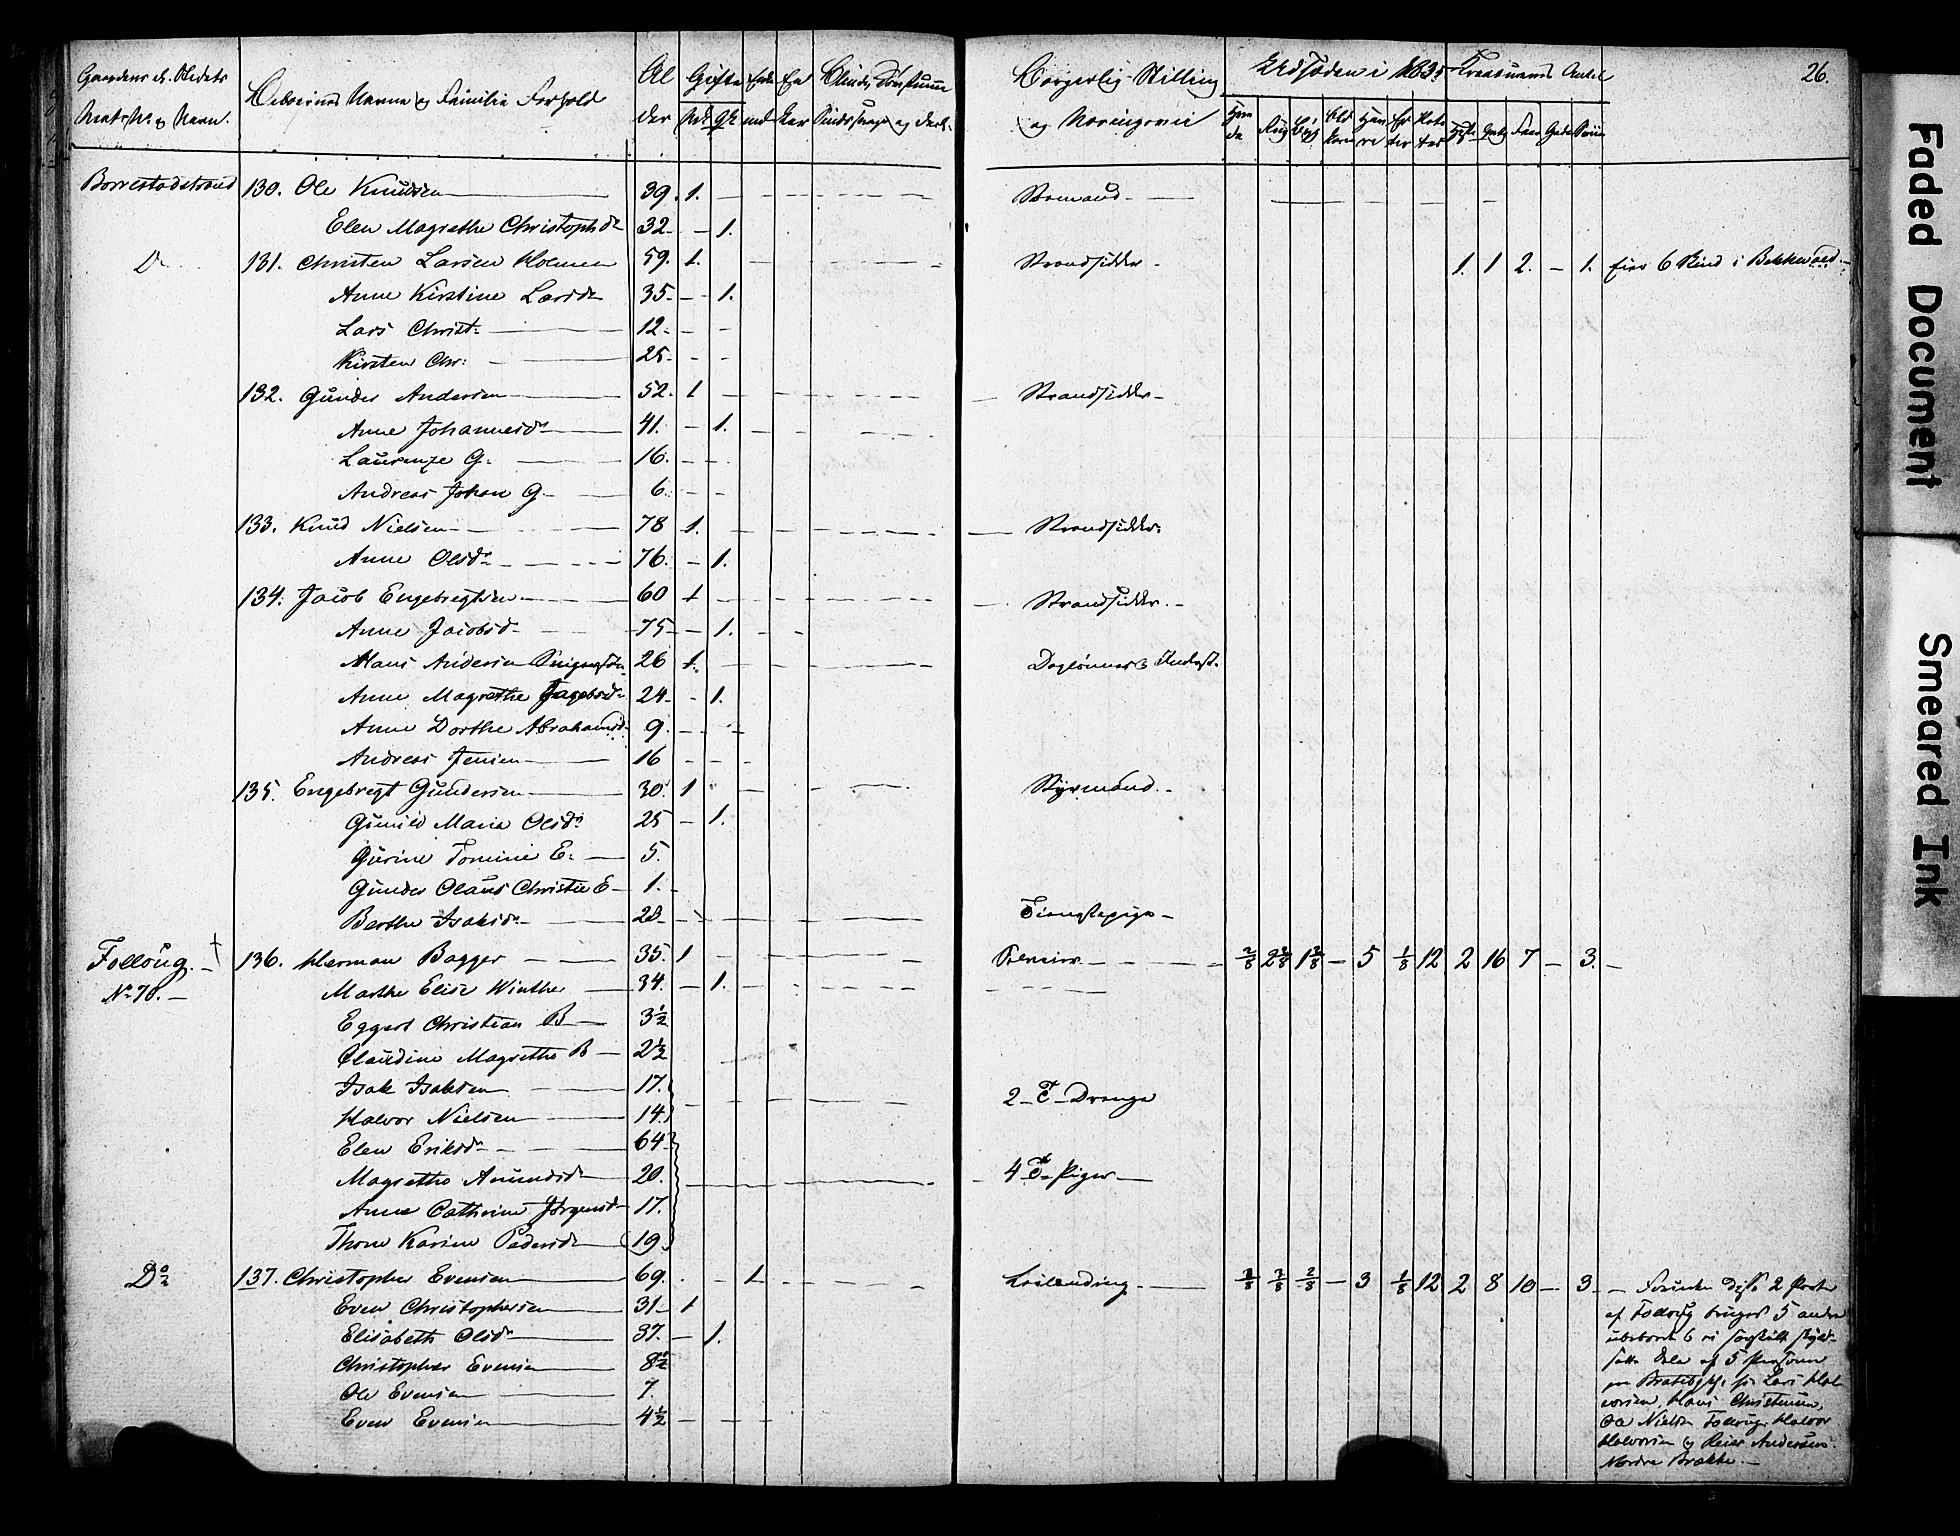 Gaardens el. Stedets
Matr. No og Navn.
Beboernes Navne og Familie Forhold
Al
der
Gifte
Mk Qk
Blinde, Døvstumme
Sindssvage og
Borgerlig Stilling
og Næringsvei
Udsæden i 1835
Kreaturenes Antal
26.
Borrestadstrand 130. Ole Knudsen 39. 1. Strmand
Elen Magrethe Christophdr 32 1.
Do 131. Christen Larsen Holmen 59. 1. Strandsidder 1. 1 2. 1. Eier 6 Skind i Bekkevold
Anne Kirstine Larsdr 35. 1.
Lars Christ. 12.
Kirsten Chr: 25.
132. Gunder Andersen 52. 1 Strandsidder
Anne Johannesdr 41. 1.
Laurenze G. 16.
Andreas Johan G. 6.
133. Knud Nielsen 78 1. Strandsidder
Anne Olsdr 76. 1.
134. Jacob Engebregtsen 60 1 Strandsidder.
Anne Jacobsd. 75 1.
Hans Andersen 26 1. Daglønner & Inderst.
Anne Magrethe Jagobsd. 24. 1.
Anne Dorthe Abrahamsd. 9.
Andreas Jensen 16
135. Engebregt Gundersen 30. 1 Styrmand.
Gunild Maria Olsdr 25 1.
Gurine Tomine E. 5.
Gunder Olaus Christie E 1.
Berthe Isaksdr 28. Tienestepige
Follaug. 136. Herman Bagger 35. 1 2/8 2 2/8 1 2/8 5 1/8 12 2 16 7 3.
No 70. Marthe Elise Winther 34. 1.
Eggert Christian B 3½
Claudine Magrethe B 2½
Isak Isaksen 17.
2 T Drenge
Halvor Nielsen 14.
Elen Eriksdr 64
4 T Piger
Magrethe Amundsdr 20.
Anne Cathrine Jørgensdr 17.
Thone Karine Pedersdr 19.
Do 137. Christopher Evensen 69. 1 Leilending 2/8 2/8 3 1/8 12 2 8 10 3.
Foruden disse 2 Parter
Even Christophersen 31 1
af Follaug bruges 5 andre
Elisabeth Olsdr 37. 1.
ubeboede & i særskilt skyld-
Christopher Evensen 8½
satte Dele af 5 Personer
Ole Evensen 7.
Lars Hal
vorsen, Hans Christensen,
Even Evensen 4½
Ole Nielsen Follaug, Halvor
Halvorsen og Reier Andersens
Nordre Brække.
Faded Document
Smeared Ink